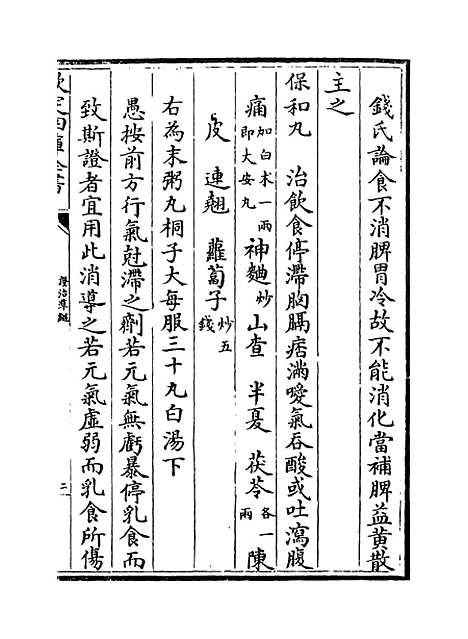 錢氏論食不消脾胃冷故不能消化當補脾益黄散
主之
保和丸　治飲食停滯胸膈痞滿噯氣吞酸或吐瀉腹
痛加白术一兩即大安丸神麯炒山查　半夏　茯苓各一兩陳
皮　連翹　蘿蔔子炒五錢
右為末粥丸桐子大每服三十丸白湯下
愚按前方行氣尅滯之劑若元氣無虧暴停乳食而
致斯證者宜用此消導之若元氣虚弱而乳食所傷
欽定四庫全書
證治準繩